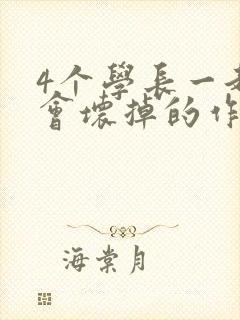 4个學長一起
會壞掉的作
海棠月